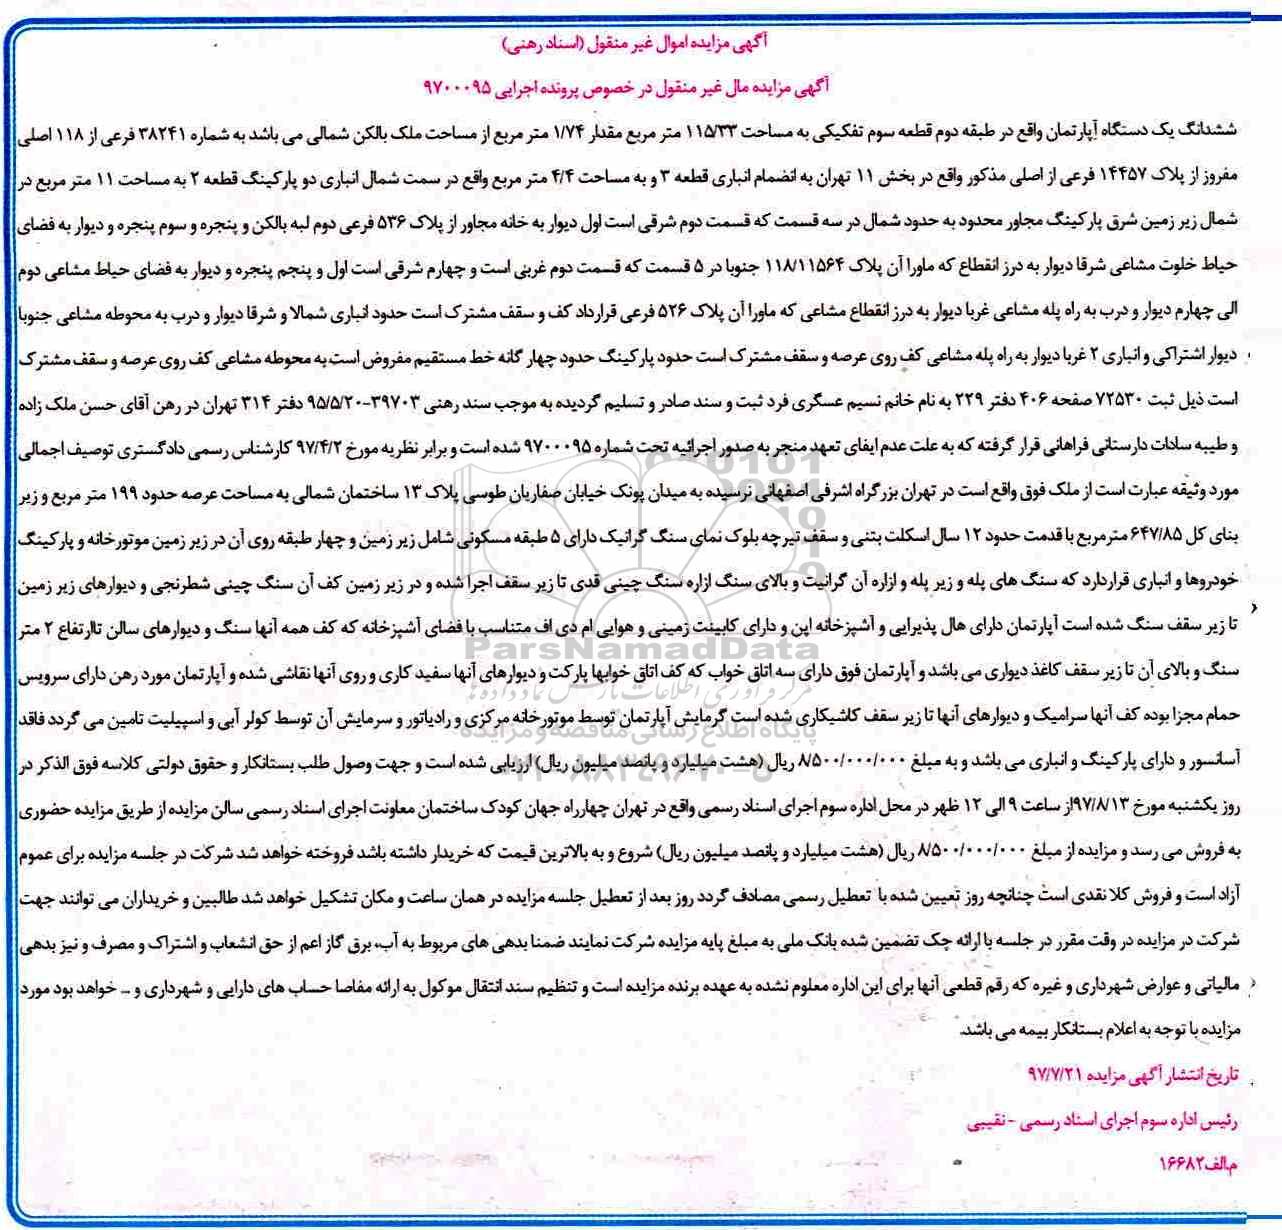 آگهی مزایده اموال غیر منقول (اسناد رهنی)
آگهی مزایده مال غیر منقول در خصوص پرونده اجرایی ۹۷۰۰۰۹۵
ششدانگ یک دستگاه آپارتمان واقع در طبقه دوم قطعه سوم تفکیکی به مساحت ۱۱۵/۳۳ متر مربع مقدار ۱/۷۴ متر مربع از مساحت ملک بالکن شمالی می باشد به شماره ۳۸۲۴۱ فرعی از ۱۱۸ اصلی
مفروز از پلاک ۱۴۴۵۷ فرعی از اصلی مذکور واقع در بخش ۱۱ تهران به انضمام انباری قطعه ۳ و به مساحت ۴/۴ متر مربع واقع در سمت شمال انباری دو پارکینگ قطعه ۲ به مساحت ۱۱ متر مربع در
شمال زیر زمین شرق پارکینگ مجاور محدود به حدود شمال در سه قسمت که قسمت دوم شرقی است اول دیوار به خانه مجاور از پلاک ۵۳۶ فرعی دوم لبه بالکن و پنجره و سوم پنجره و دیوار به فضای
حیاط خلوت مشاعی شرقا دیوار به درز انقطاع که ماورا آن پلاک ۱۱۸/۱۱۵۶۴ جنوبا در ۵ قسمت که قسمت دوم غربی است و چهارم شرقی است اول و پنجم پنجره و دیوار به فضای حیاط مشاعی دوم
الی چهارم دیوار و درب به راه پله مشاعی غربا دیوار به درز انقطاع مشاعی که ماورا آن پلاک ۵۲۶ فرعی قرارداد کف و سقف مشترک است حدود انباری شمالا و شرقا دیوار و درب به محوطه مشاعی جنوبا
دیوار اشتراکی و انباری ۲ غربا دیوار به راه پله مشاعی کف روی عرصه و سقف مشترک است حدود پارکینگ حدود چهار گانه خط مستقیم مفروض است به محوطه مشاعی کف روی عرصه و سقف مشترک
است ذیل ثبت ۷۲۵۳۰ صفحه ۴۰۶ دفتر ۲۲۹ به نام خانم نسیم عسگری فرد ثبت و سند صادر و تسلیم گردیده به موجب سند رهنی ۳۹۷۰۳-۹۵/۵/۲۰ دفتر ۳۱۴ تهران در رهن آقای حسن ملک زاده
و طیبه سادات دارستانی فراهانی قرار گرفته که به علت عدم ایفای تعهد منجر به صدور اجرائیه تحت شماره ۹۷۰۰۰۹۵ شده است و برابر نظریه مورخ ۹۷/۴/۲ کارشناس رسمی دادگستری توصیف اجمالی
مورد وثیقه عبارت است از ملک فوق واقع است در تهران بزرگراه اشرفی اصفهانی نرسیده به میدان پونک خیابان صفاریان طوسی پلاک ۱۳ ساختمان شمالی به مساحت عرصه حدود ۱۹۹ متر مربع و زیر
بنای کل ۶۴۷/۸۵ مترمربع با قدمت حدود ۱۲ سال اسکلت بتنی و سقف تیرچه بلوک نمای سنگ گرانیک دارای ۵ طبقه مسکونی شامل زیر زمین و چهار طبقه روی آن در زیر زمین موتورخانه و پارکینگ
خودروها و انباری قراردارد که سنگ های پله و زیر پله و ازاره آن گرانیت و بالای سنگ ازاره سنگ چینی قدی تا زیر سقف اجرا شده و در زیر زمین کف آن سنگ چینی شطرنجی و دیوارهای زیر زمین
تا زیر سقف سنگ شده است آپارتمان دارای هال پذیرایی و آشپزخانه اپن و دارای کابینت زمینی و هوایی ام دی اف متناسب با فضای آشپزخانه که کف همه آنها سنگ و دیوارهای سالن تاارتفاع ۲ متر
سنگ و بالای آن تا زیر سقف کاغذ دیواری می باشد و آپارتمان فوق دارای سه اتاق خواب که کف اتاق خوابها پارکت و دیوارهای آنها سفید کاری و روی آنها نقاشی شده و آپارتمان مورد رهن دارای سرویس
حمام مجزا بوده کف آنها سرامیک و دیوارهای آنها تا زیر سقف کاشیکاری شده است گرمایش آپارتمان توسط موتورخانه مرکزی و رادیاتور و سرمایش آن توسط کولر آبی و اسپیلیت تامین می گردد فاقد
آسانسور و دارای پارکینگ و انباری می باشد و به مبلغ ۸/۵۰۰/۰۰۰/۰۰۰ ریال (هشت میلیارد و پانصد میلیون ریال) ارزیابی شده است و جهت وصول طلب بستانکار و حقوق دولتی کلاسه فوق الذکر در
روز یکشنبه مورخ ۹۷/۸/۱۳از ساعت ۹ الی ۱۲ ظهر در محل اداره سوم اجرای اسناد رسمی واقع در تهران چهارراه جهان کودک ساختمان معاونت اجرای اسناد رسمی سالن مزایده از طریق مزایده حضوری
به فروش می رسد و مزایده از مبلغ ۸/۵۰۰/۰۰۰/۰۰۰ ریال (هشت میلیارد و پانصد میلیون ریال) شروع و به بالاترین قیمت که خریدار داشته باشد فروخته خواهد شد شرکت در جلسه مزایده برای عموم
آزاد است و فروش کلا نقدی است چنانچه روز تعیین شده با تعطیل رسمی مصادف گردد روز بعد از تعطیل جلسه مزایده در همان ساعت و مکان تشکیل خواهد شد طالبین و خریداران می توانند جهت
شرکت در مزایده در وقت مقرر در جلسه با ارائه چک تضمین شده بانک ملی به مبلغ پایه مزایده شرکت نمایند ضمنا بدهی های مربوط به آب، برق گاز اعم از حق انشعاب و اشتراک و مصرف و نیز بدهی
مالیاتی و عوارض شهرداری و غیره که رقم قطعی آنها برای این اداره معلوم نشده به عهده برنده مزایده است و تنظیم سند انتقال موکول به ارائه مفاصا حساب های دارایی و شهرداری و ... خواهد بود مورد
مزایده با توجه به اعلام بستانکار بیمه می باشد.
تاریخ انتشار آگهی مزایده ۹۷/۷/۲۱
رئیس اداره سوم اجرای اسناد رسمی - نقیبی
م.الف۱۶۶۸۲
ParsNamadData
مرکز فرآوری اطلاعات پارس نماد داده ها
پایگاه اطلاع رسانی مناقصه و مزایده